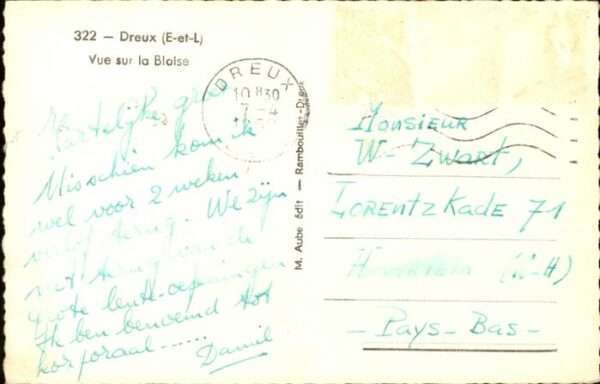 322 — Dreux (E-et-L)
Vue sur la Blaise
DREUX
10 H30
7-4
M. Aube édit — Rambouillet-Dreux
Hartelijke
Misschien kom ik
wel voor 2 weken
verlof terug. We zijn
net terug van de
grote lente-oefeningen
Ik ben benoemd tot
korporaal ......
Daniel
Monsieur
W- Zwart,
Lorentzkade 71
(N-H)
- Pays- Bas -